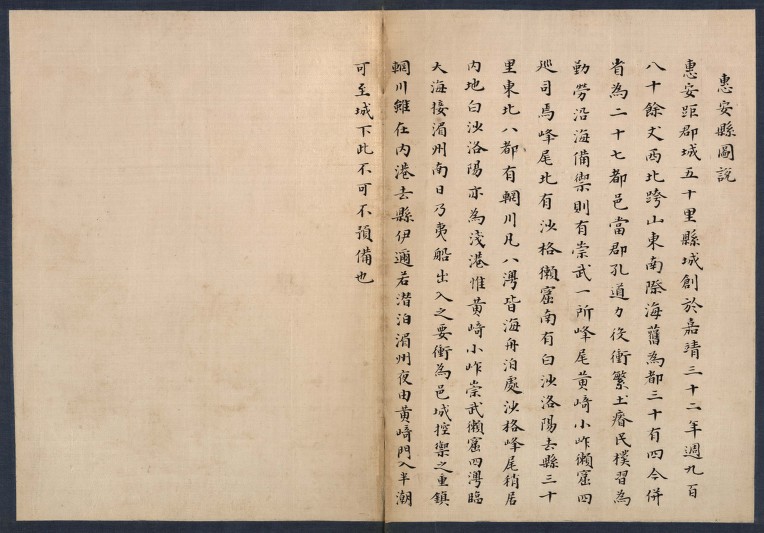 惠安縣圖說
惠安距郡城五十里縣城創於嘉靖三十二年週九百
八十餘丈西北跨山東南際海舊為都三十有四今併
省為二十七都邑當郡孔道力役衝繁土瘠民樸習為
勤勞沿海備禦則有崇武一所峰尾黃崎小岞獺窟四
廵司馬峰尾北有沙格獺窟南有白沙洛陽去縣三十
里東北八都有輞川凡八灣皆海舟泊處沙格峰尾稍居
內地白沙洛陽亦為淺港惟黃崎小岞崇武獺窟四灣臨
大海接湄州南日乃夷船出入之要衝為邑城控禦之重鎮
輞川雖在內港去縣伊邇若潛泊湄州夜由黃崎門入半潮
可至城下此不可不預備也